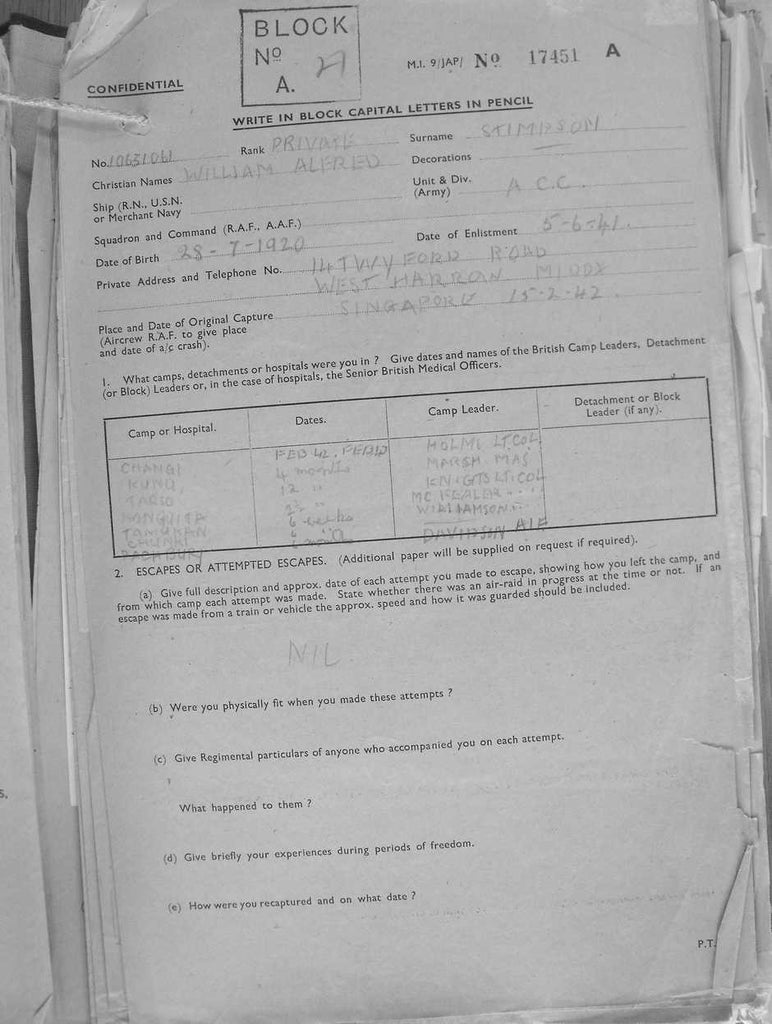 BLOCK
Nº
A.
M.I. 9/JAP/ Nº 17451 A
CONFIDENTIAL
WRITE IN BLOCK CAPITAL LETTERS IN PENCIL
No. 10631061 Rank PRIVATE Surname STIMPSON
Christian Names WILLIAM ALFRED Decorations
Ship (R.N., U.S.N. or Merchant Navy
Unit & Div. (Army) A C.C.
Squadron and Command (R.A.F., A.A.F.)
Date of Birth 28-7-1920 Date of Enlistment 5-6-41.
Private Address and Telephone No. 14 TWYFORD ROAD
WEST HARROW MIDDX
Place and Date of Original Capture SINGAPORE 15-2-42.
(Aircrew R.A.F. to give place
and date of a/c crash).
1. What camps, detachments or hospitals were you in ? Give dates and names of the British Camp Leaders, Detachment
(or Block) Leaders or, in the case of hospitals, the Senior British Medical Officers.
Camp or Hospital. Dates. Camp Leader. Detachment or Block Leader (if any).
CHANGI FEB 42. HOLME LT.COL
4 months MARSH. MAJ
12 " LT.COL
WILLIAMSON
6 weeks
DAVIDSON AIF
2. ESCAPES OR ATTEMPTED ESCAPES. (Additional paper will be supplied on request if required).
(a) Give full description and approx. date of each attempt you made to escape, showing how you left the camp, and
from which camp each attempt was made. State whether there was an air-raid in progress at the time or not. If an
escape was made from a train or vehicle the approx. speed and how it was guarded should be included.
NIL
(b) Were you physically fit when you made these attempts ?
(c) Give Regimental particulars of anyone who accompanied you on each attempt.
What happened to them ?
(d) Give briefly your experiences during periods of freedom.
(e) How were you recaptured and on what date ?
P.T.